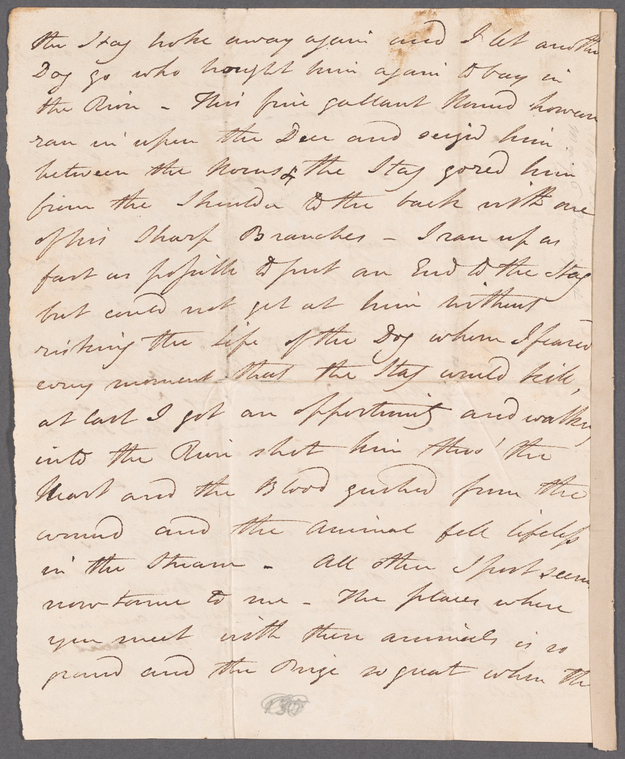 the Stag broke away again and I let another
Dog go who brought him again to bay in
the River - This fine gallant Hound however
ran in upon the Deer and seiz'd him
between the Horns & the Stag gored him
from the Shoulder to the back with one
of his Sharp Branches - I ran up as
fast as possible to put an End to the Stag
but could not get at him without
risking the life of the Dog whom I feared
every moment that the Stag would kill,
at last I got an opportunity and walking
into the River shot him thro' the
Heart and the Blood gushed from the
wound and the animal fell lifeless
in the Stream - All other Sport seem
now tame to me - The places where
you meet with these animals is so
grand and the Prize so great when the
130